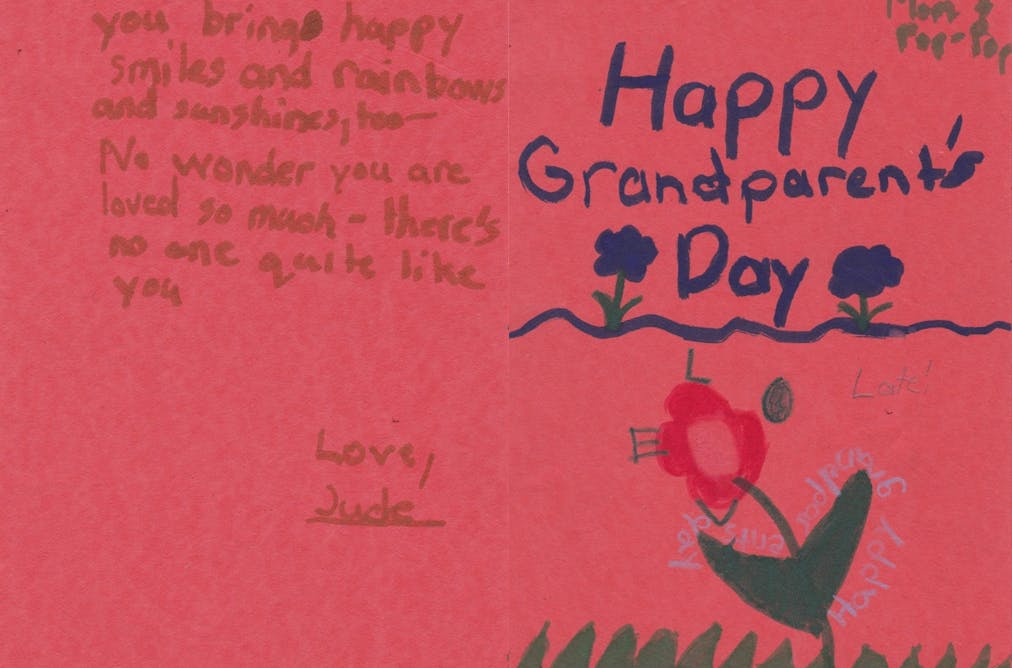 you brings happy
smiles and rainbows
and sunshines, too—
No wonder you are
loved so much - there's
no one quite like
you
Love,
Jude
Mom &
Pop-Pop
Happy
Grandparent's
Day
Late!
L
O
V
E
Happy Grandparents Day